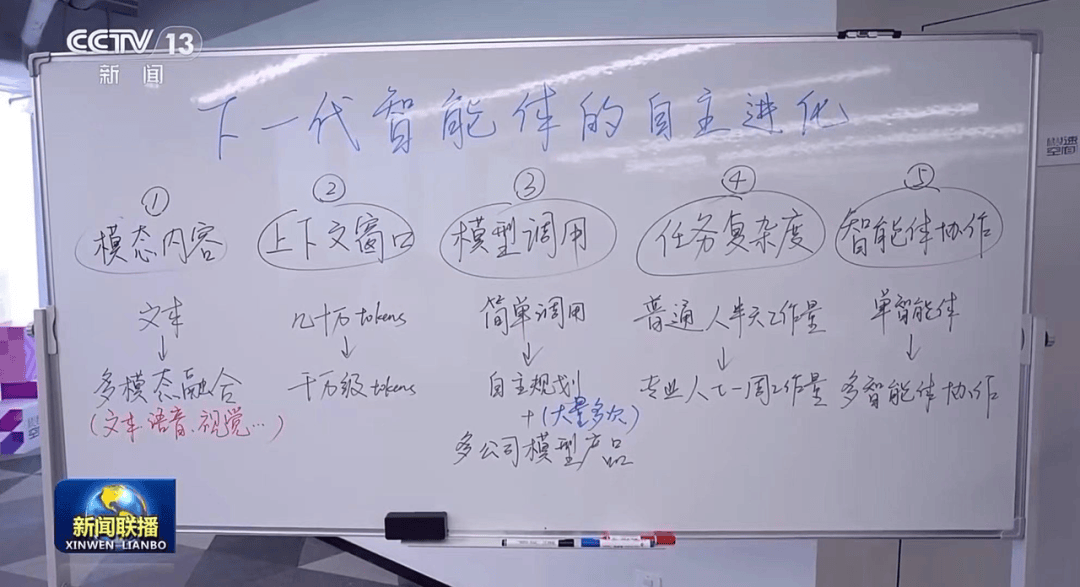 CCTV 13
新闻
下一代智能体的自主进化
① ② ③ ④ ⑤
模态内容 上下文窗口 模型调用 任务复杂度 智能体协作
文本 几十万tokens 简单调用 普通人半天工作量 单智能体
↓ ↓ ↓ ↓ ↓
多模态融合 千万级tokens 自主规划 专业人士一周工作量 多智能体协作
(文本.语音.视觉…) + (大量多次)
多公司模型产品
极速
空间
新闻联播
XINWEN LIANBO